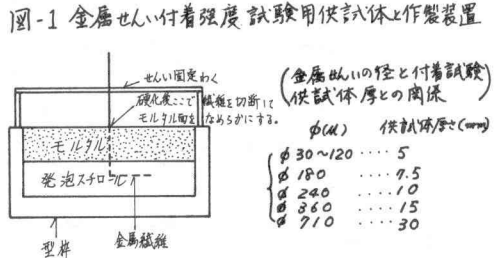 図-1 金属せんい付着強度試験用供試体と作製装置
せんい固定わく
硬化後ここで繊維を切断して
モルタル面をなめらかにする。
モルタル
発泡スチロール
型枠
金属繊維
(金属せんいの径と付着試験
供試体厚との関係)
φ(μ) 供試体厚さ(mm)
φ 30~120 ···· 5
φ 180 ···· 7.5
φ 240 ···· 10
φ 360 ···· 15
φ 710 ···· 30